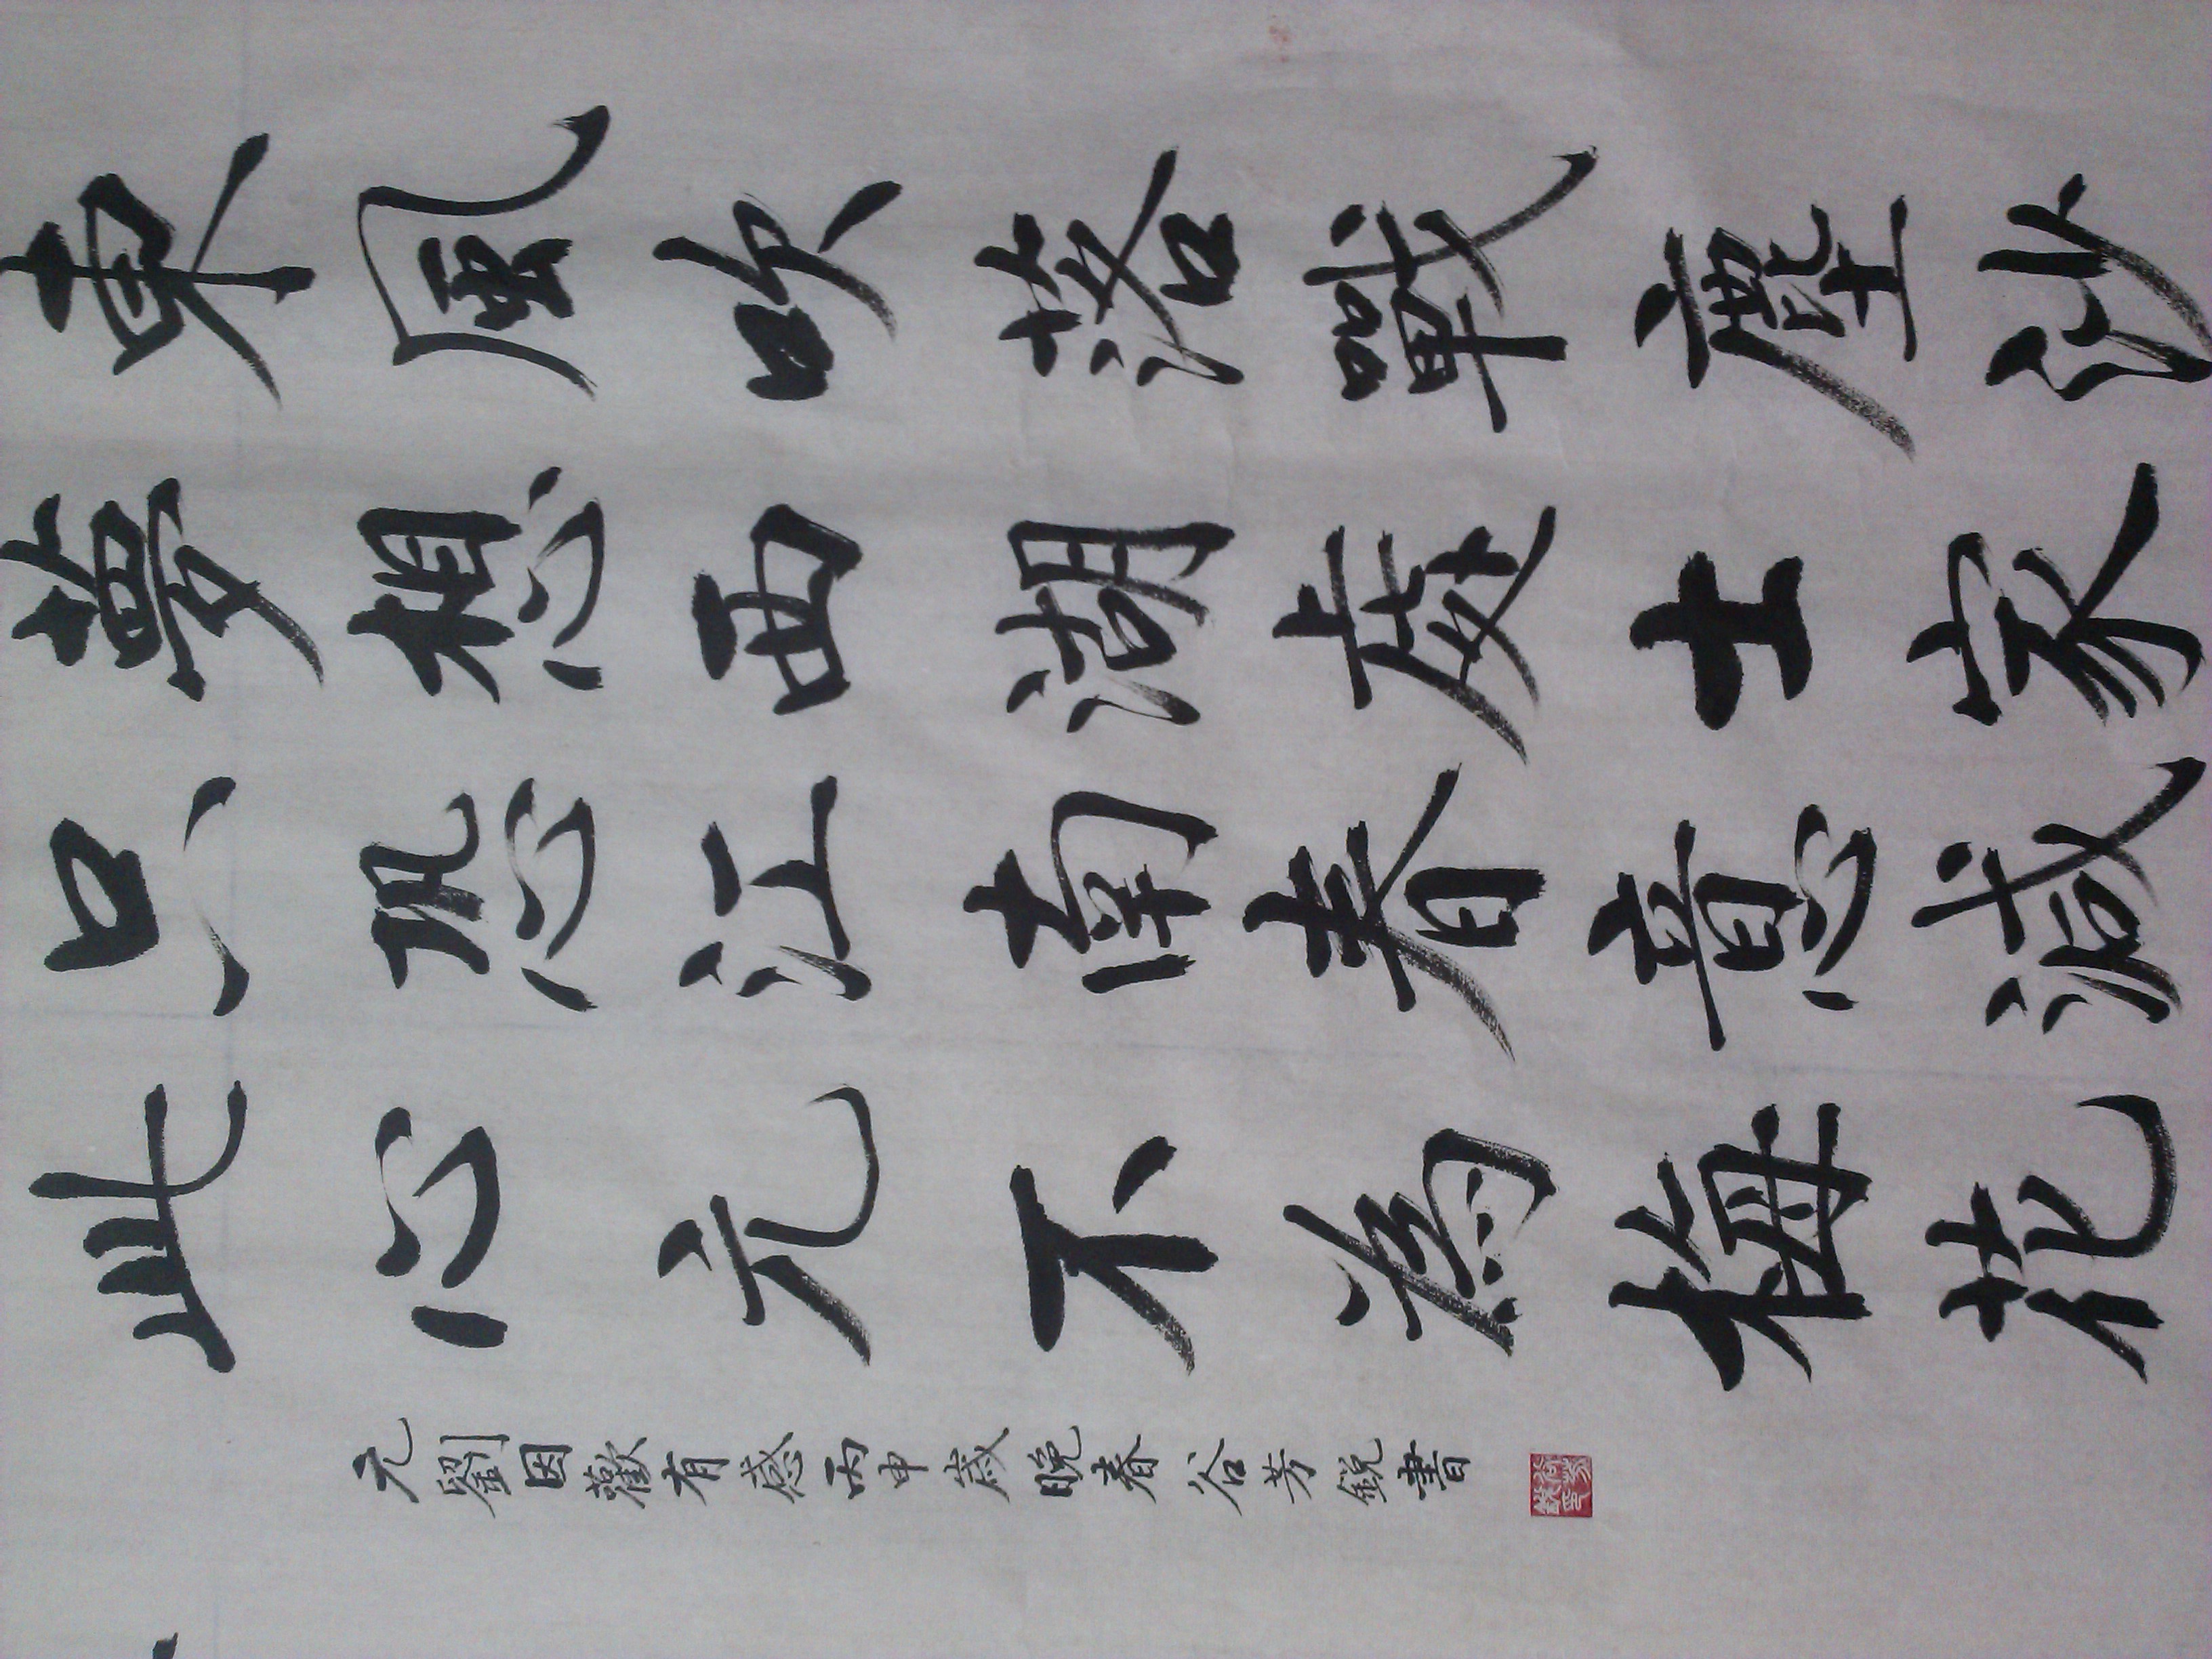 東風吹落戰塵沙
夢想西湖處士家
只恐江南春意減
此心元不為梅花
元劉因歡有感丙申歲晚春谷芳銳書
谷芳銳印